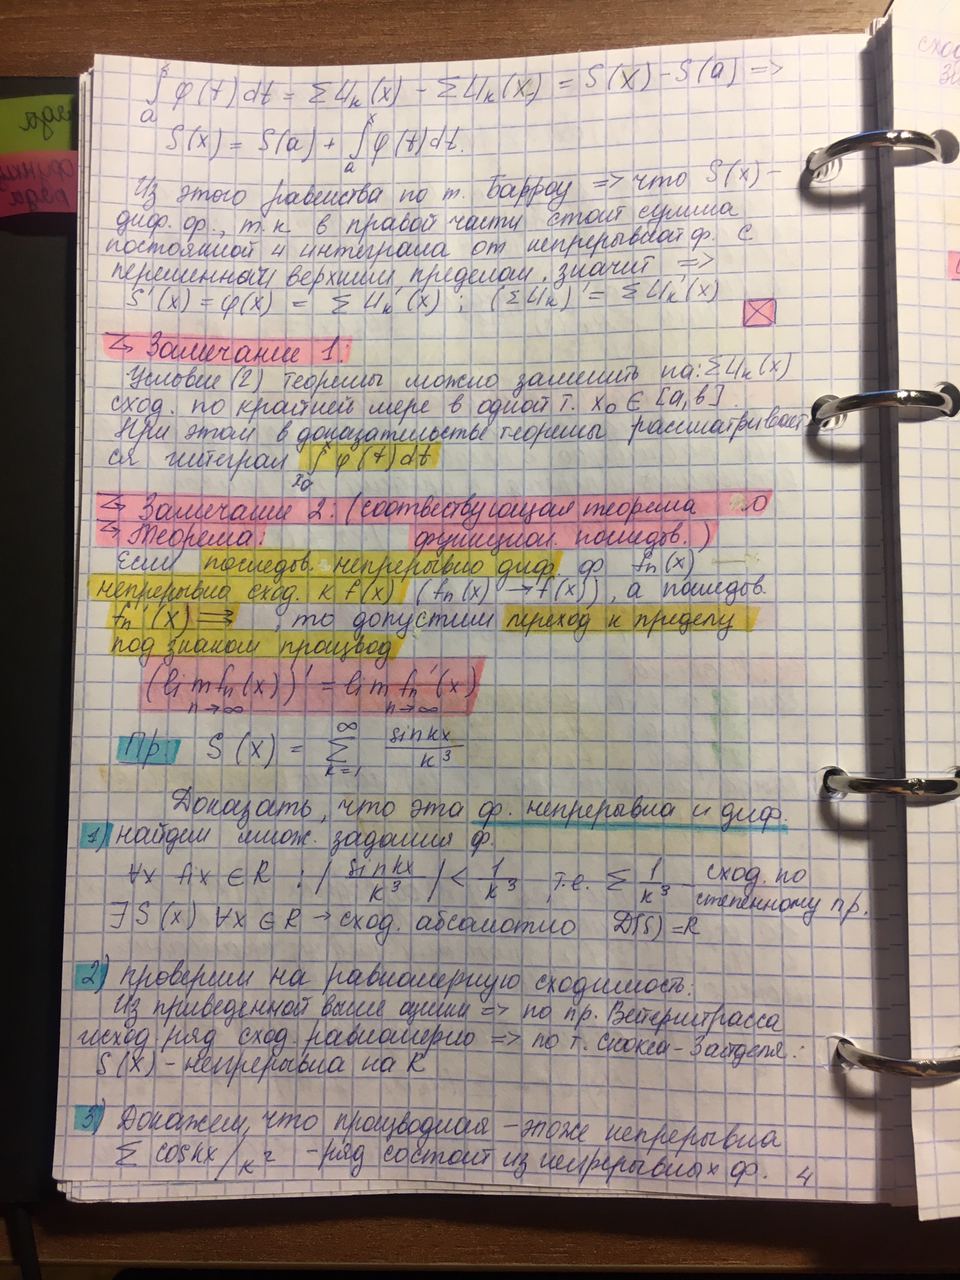 ∫ₐˣ φ(t)dt = ΣUₖ(x) - ΣUₖ(x) = S(x) - S(a) =>
S(x) = S(a) + ∫ₐˣ φ(t)dt.
Из этого равенства по т. Барроу => что S(x) -
диф. ф., т.к. в правой части стоит сумма
постоянной и интеграла от непрерывной ф. с
переменным верхним пределом, значит =>
S'(x) = φ(x) = ΣUₖ'(x) ; (ΣUₖ)' = ΣUₖ'(x)
Замечание 1:
Условие (2) теоремы можно заменить на: ΣUₖ(x)
сход. по крайней мере в одной т. x₀ ∈ [a,b].
При этом в доказательстве теоремы рассматривает
ся интеграл ∫ₓ₀ˣ φ(t)dt
Замечание 2: (соотвествующая теорема о
Теорема: функцион. последов.)
Если последов. непрерывно диф ф fₙ(x)
непрерывна сход. к f(x) (fₙ(x) → f(x)), а последов.
fₙ'(x) ⇉ , то допустим переход к пределу
под знаком производ
(lim fₙ(x))' = lim fₙ'(x)
n→∞ n→∞
Пр: S(x) = Σ_{k=1}^{∞} sin kx / k³
Доказать, что эта ф. непрерывна и диф.
1) найдем множ. задания ф.
∀x fix ∈ R : | sin kx / k³ | < 1/k³ т.е. Σ 1/k³ - сход. по
степенному пр.
∃ S(x) ∀x ∈ R → сход. абсолютно D(S) = R
2) проверим на равномерную сходимость:
Из приведенной выше оценки => по пр. Вейерштрасса
исход. ряд сход. равномерно => по т. Стокса-Зайделя:
S(x) - непрерывна на R
3) Докажем, что производная - тоже непрерывна
Σ cos kx / k² - ряд состоит из непрерывных ф. 4